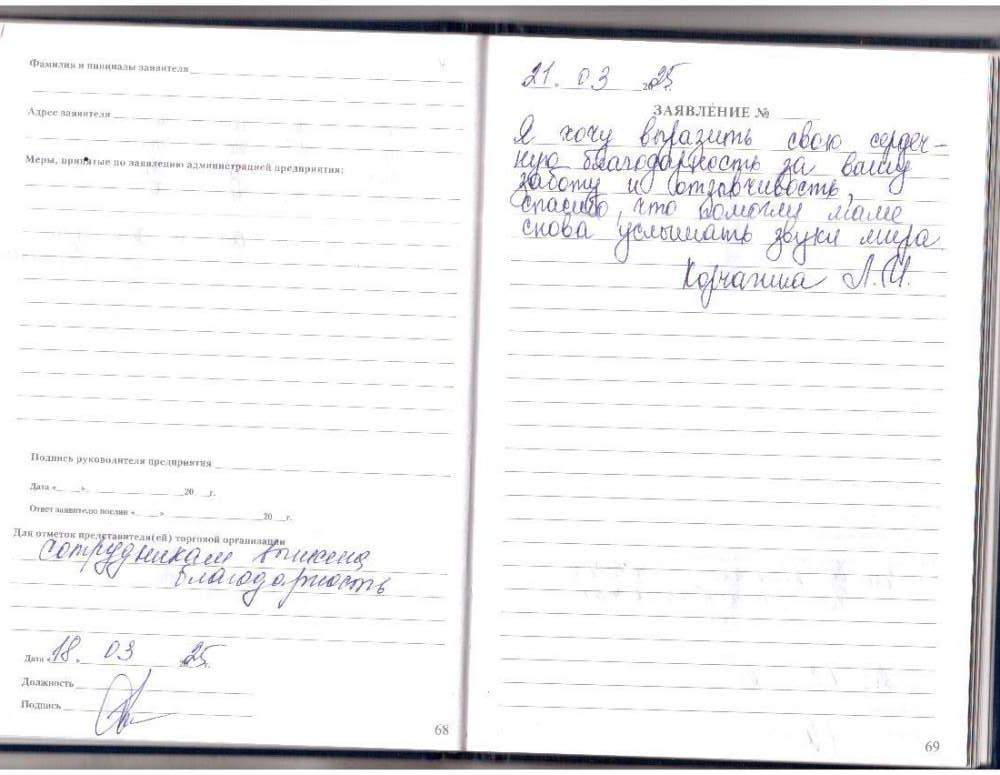 Фамилия и инициалы заявителя
Адрес заявителя
Меры, принятые по заявлению администрацией предприятия:
Подпись руководителя предприятия
Дата «    »    20    г.
Ответ заявителю послан «    »    20    г.
Для отметок представителя(ей) торговой организации
сотрудникам вынесена
благодарность
Дата «18. 03 2025г.
Должность
Подпись
68
21. 03 2025г.
ЗАЯВЛЕНИЕ №
Я хочу выразить свою сердеч-
ную благодарность за вашу
заботу и отзывчивость,
спасибо, что помогли маме
снова услышать звуки мира
Корчагина Л.И.
69